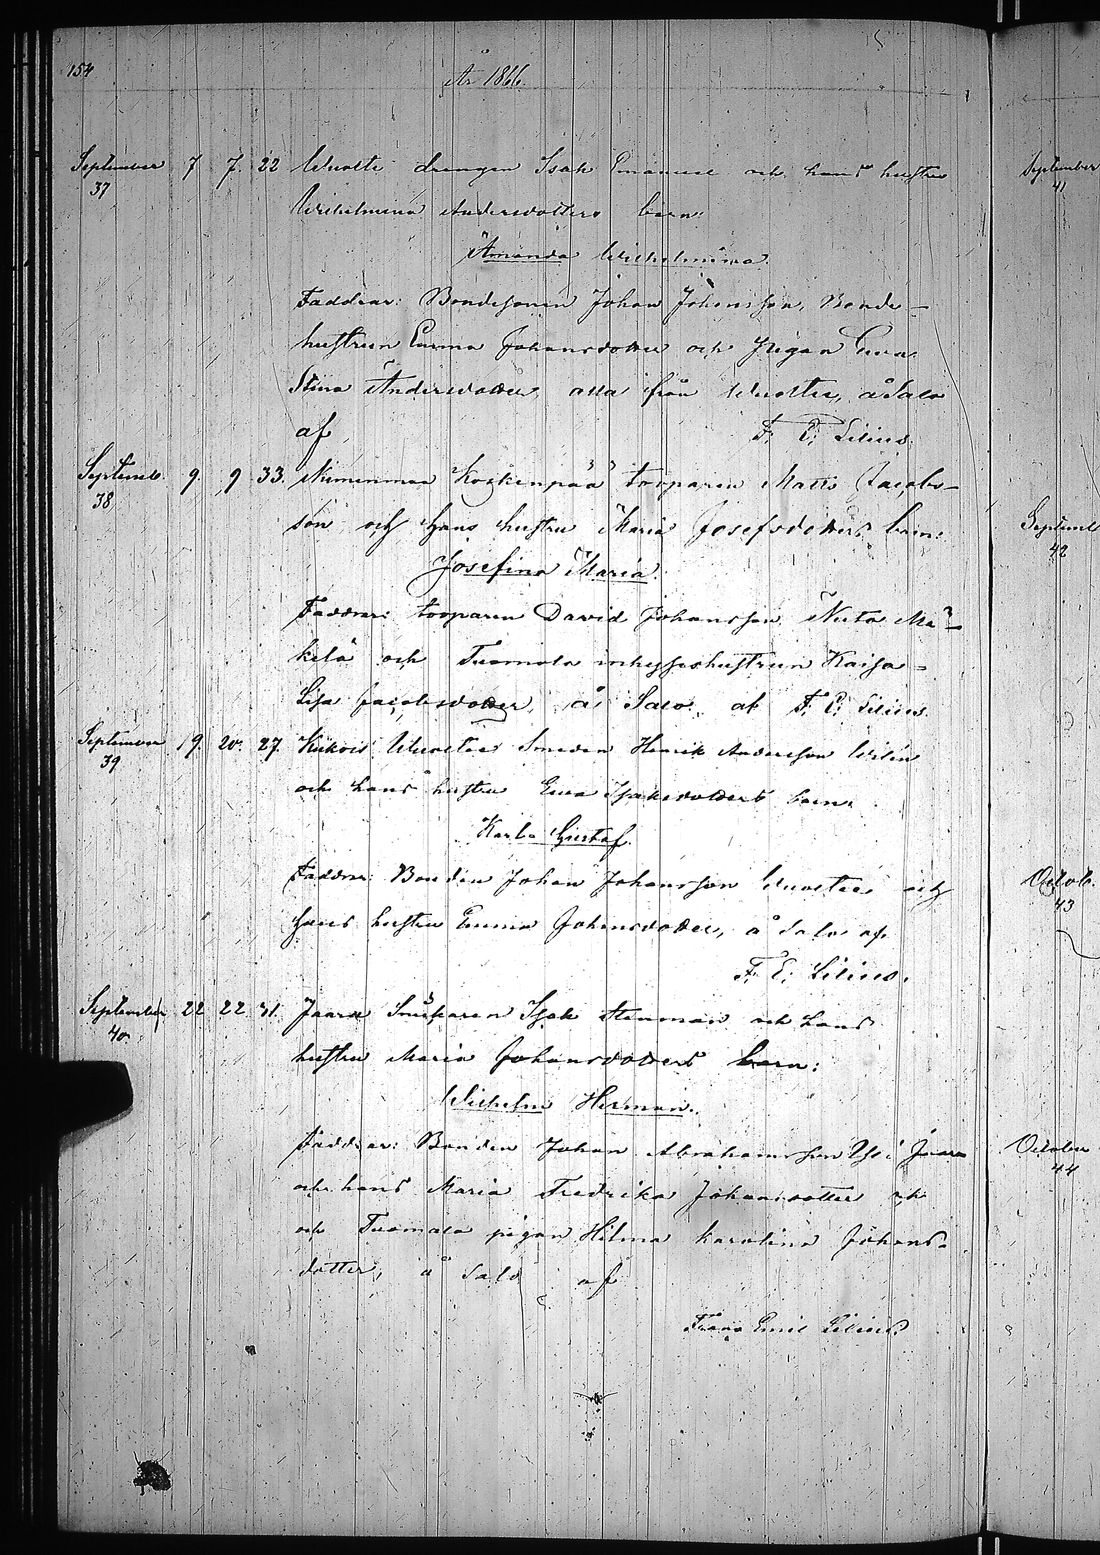 154
År 1866.
September 7 7. 22 Wuolti drengen Isak Emanuel och hans hustru
37
Wilhelmina Andersdotters barn:
Amanda Wilhelmina.
Faddrar: Bondesonen Johan Johansson, Bonde-
hustrun Emma Johansdotter och pigan Eva
Stina Andersdotter, alla från Wuoltee, å Salo
af F. E. Lilius.
Septemb. 9. 9 33. Koskenpää torparen Matts Jacobs-
38
son och hans hustru Maria Josefsdotters barn:
Josefina Maria.
Faddrar: torparen David Johansson Mä-
kelä och Tuomola inhyseshustrun Kaisa-
Lisa Jacobsdotter, å Salo, af F. E. Lilius.
September 19. 20. 27. Wuoltee Smeden Henrik Andersson Wilén
39
och hans hustru Eva Isaksdotters barn:
Karl Gustaf.
Faddrar: Bonden Johan Johansson Wuoltee och
hans hustru Emma Johansdotter, å Salo af
F. E. Lilius.
September 22 22 31. Jaara Isak Stenman och hans
40
hustru Maria Johansdotters barn:
Wilhelm Herman.
Faddrar: Bonden Johan Abrahamsson Yli Jaara
och hans Maria Fredrika Johansdotter och
och Tuomala pigan Hilma Karolina Johans-
dotter, å Salo af
Frans Emil Lilius.
September
41
Septemb
42
Octob.
43
October
44